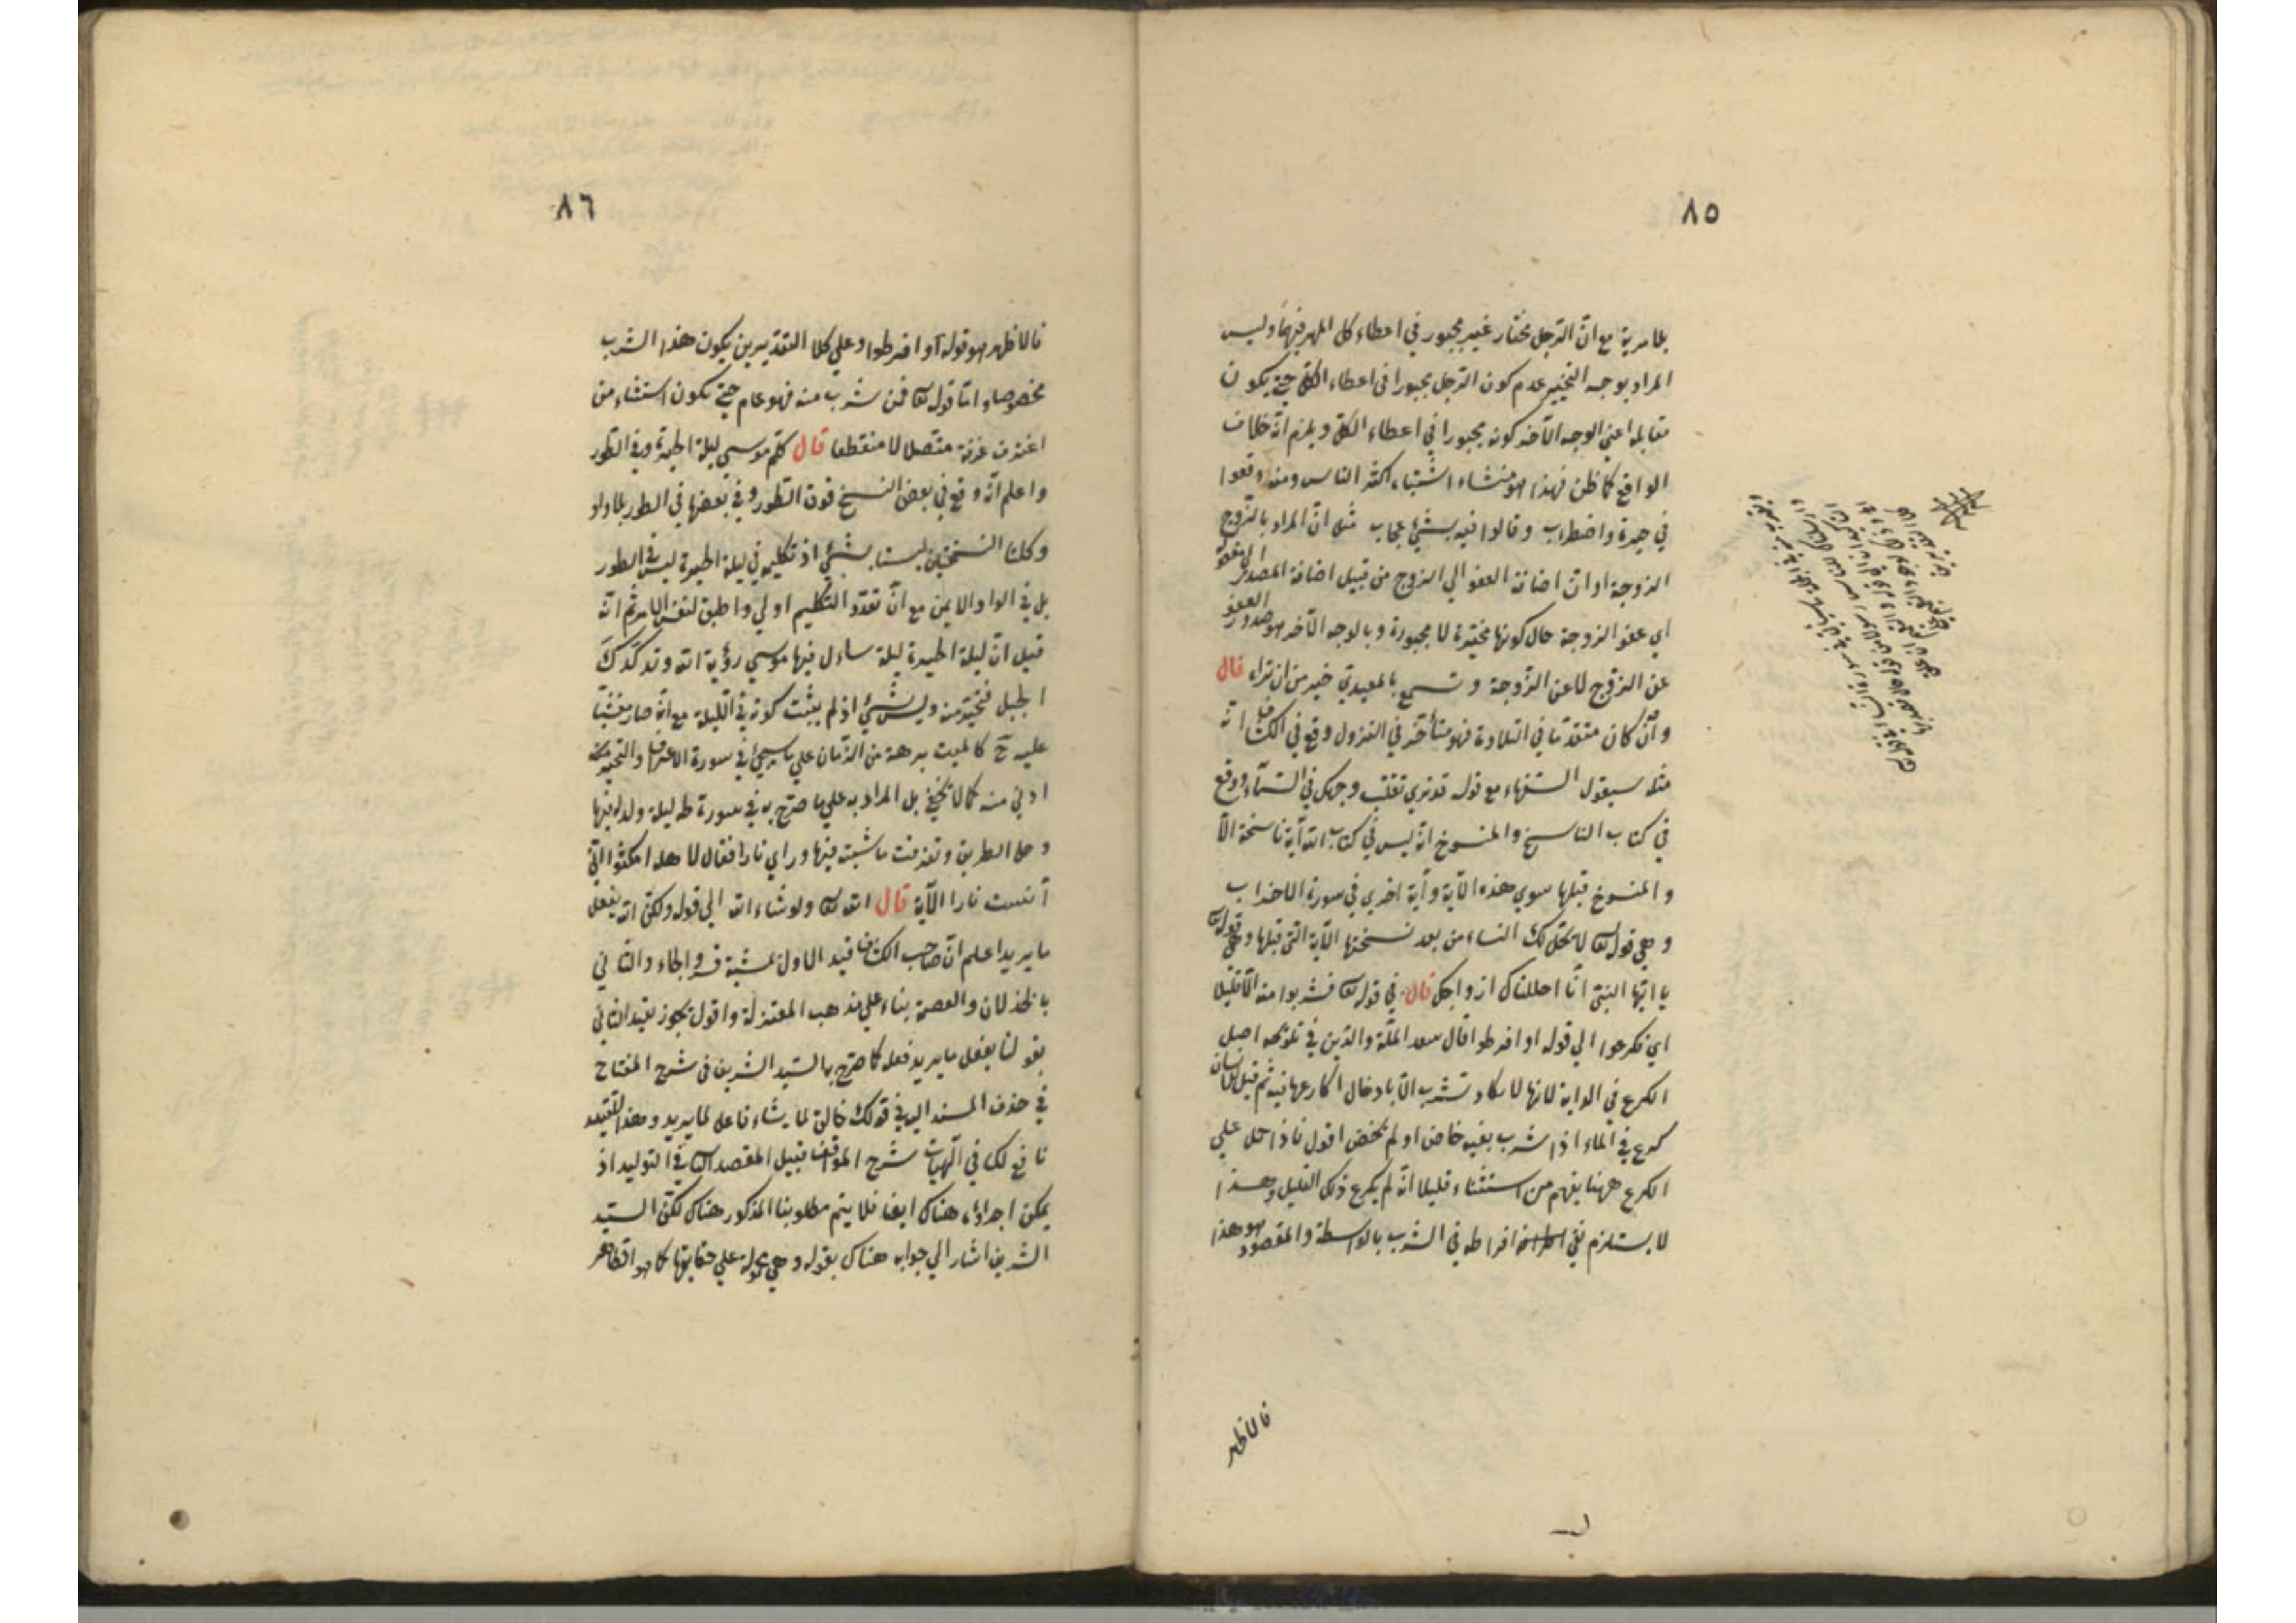 ٨٥
بلا مرية مع انّ الرّجل مختار غير مجبور في اعطاء كل المهر فيهما وليس
المراد بوجه التخيير عدم كون الرّجل مجبورا في اعطاء الكلّ حتى يكون
مقابله اعني الوجه الآخر كونه مجبورا في اعطاء الكلّ ويلزم انّه خلاف
الواقع كما ظن فهذا هو منشاء اشتباه اكثر الناس ومنه وقعوا
في حيرة واضطراب وقالوا فيه بشئ عجاب مثل انّ المراد بالزّوج
الزوجة او انّ اضافة العفو الي الزوج من قبيل اضافة المصدر الي مفعوله
اي عفو الزوجة حال كونها مخيّرة لا مجبورة وبالوجه الآخر هو صدور العفو
عن الزوج لا عن الزّوجة وتسمع بالمعيدي خير من ان تراه قال
وان كان متقدّما في التلاوة فهو متأخّر في النزول وقع في الكشاف انّه
مثل سيقول السفهاء مع قوله قد نري تقلب وجهك في السّمآء ووقع
في كتاب الناسخ والمنسوخ انّه ليس في كتاب الله آية ناسخة الاّ
والمنسوخ قبلها سوي هذه الآية وآية اخري في سورة الاحزاب
وهي قوله تعا لا يحلّ لك النساء من بعد نسختها الآية التي قبلها وهي قوله تعا
يا ايّها النبيّ انّا احللناك ازواجك قال في قوله تعا فشربوا منه الاّ قليلا
اي فكرعوا الي قوله او افرطوا قال سعد الملّة والدّين في تلويحه اصل
الكرع في الدابة لانها لا تكاد تشرب الاّ بادخال اكارعها فيه ثم قيل للانسان
كرع في الماء اذا شرب بفيه خاض او لم يخض اقول فاذا حمل علي
الكرع ههنا يفهم من استثناء قليلا انّه لم يكرع ذلك القليل وهذا
لا يستلزم نفي افراطه في الشرب بالواسطة والمقصود هو هذا
فالاظهر
٨٦
فالاظهر هو قوله او افرطوا وعلي كلا التقديرين يكون هذا الشرب
مخصوصا وامّا قوله تعا فمن شرب منه فهو عام حتى يكون استثناء من
اغترف غرفة متّصلا لا منقطعا قال كلّم موسي ليلة الحيرة وفي الطّور
واعلم انّه وقع في بعض النسخ فوق الطّور وفي بعضها في الطور بلا واو
وكلتا النسختين ليستا بشئ اذ تكليمه في ليلة الحيرة ليس في الطور
بل في الواد الايمن مع انّ تعدّد التكليم اولي واطبق لنفس الامر ثم انّه
قيل انّ ليلة الحيرة ليلة سأل فيها موسي رؤية الله وتدكدك
الجبل فتحيّر منه وليس بشئ اذ لم يثبت كونه في اللّيلة مع انّه صار مغشيّا
عليه ح كالميت برهة من الزّمان علي ما سيجئ في سورة الاعراف والتحيّر منه
ادني منه كما لا يخفي بل المراد به علي ما صرّح به في سورة طه ليلة ولد له فيها
وضل الطريق وتفرقت ماشيته فيها وراي نارا فقال لاهله امكثوا انّي
آنست نارا الآية قال الله تعا ولو شاء الله الي قوله ولكنّ الله يفعل
ما يريد اعلم انّ صاحب الكشاف قيد الاول بمشية قسر والجاء والثاني
بالخذلان والعصمة بناء علي مذهب المعتزلة واقول يجوز تقييد الثاني
بقولنا يفعل ما يريد فعله كما صرّح به السّيد الشريف في شرح المفتاح
في حذف المسند اليه في قولك خالق لما يشاء فاعل لما يريد وهذا التقييد
نافع لك في الهيات شرح المواقف قبيل المقصد الثاني في التوليد اذ
يمكن اجراؤه هناك ايضا فلا يتم مطلوبنا المذكور هناك لكنّ السيّد
الشريف اشار الي جوابه هناك بقوله وهي محمولة علي حقايقها كما هو الظاهر